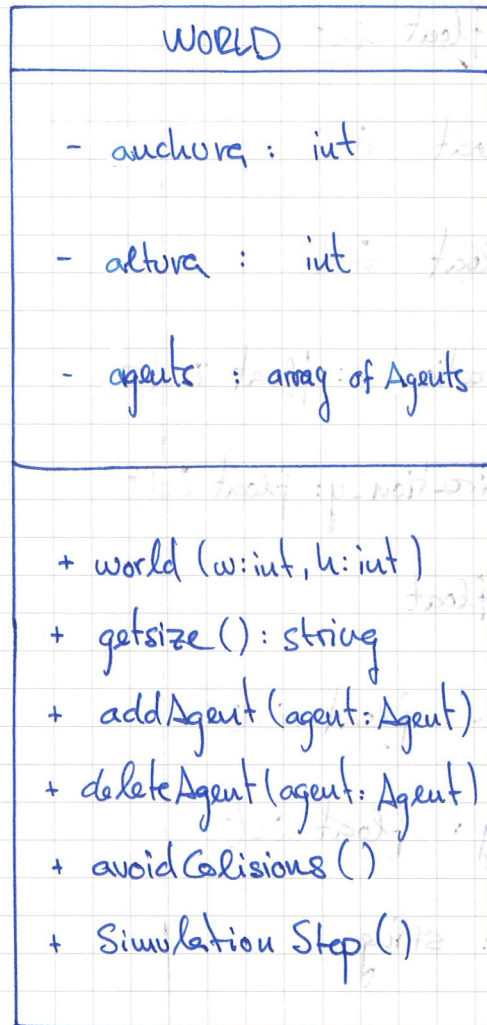 WORLD
- anchura : int
- altura : int
- agents : array of Agents
+ world (w:int, h:int)
+ getsize(): string
+ addAgent(agent: Agent)
+ deleteAgent(agent: Agent)
+ avoidColisions()
+ Simulation Step()